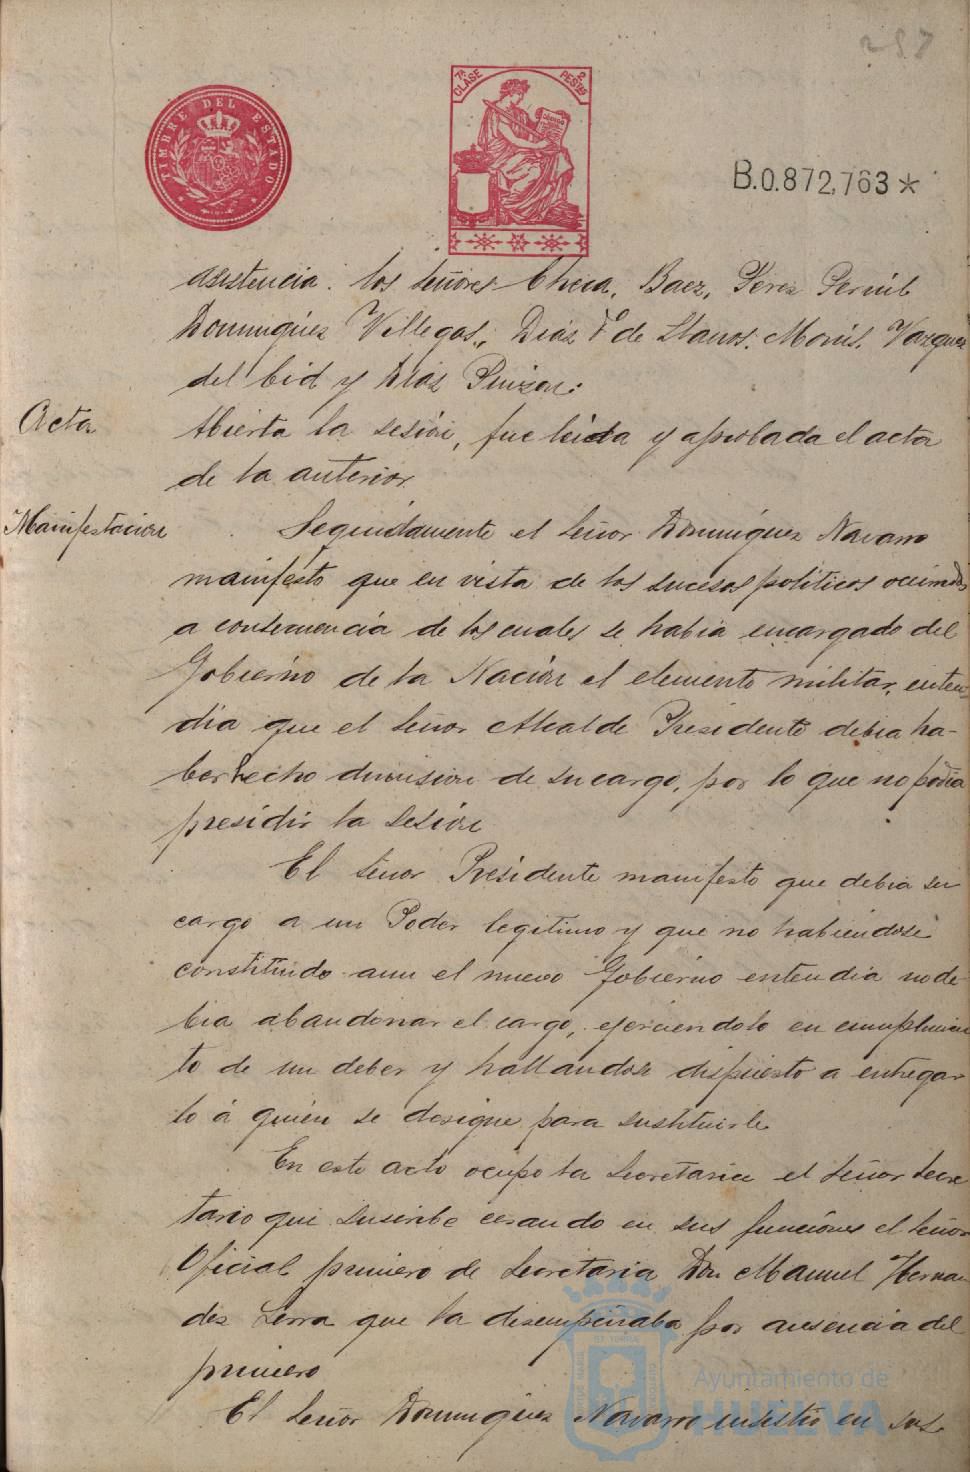 287
TIMBRE DEL ESTADO
7ª CLASE 2 PESTAS
B.0.872,763*
asistencia. los señores Checa, Baez, Perez Gernil
Dominguez Villegas., Diaz Fº de Llanos. Monís. Vazquez
del Cid y Diaz Pinzon:
Acta
Abierta la sesión, fue leida y aprobada el acta
de la anterior.
Manifestacion
Seguidamente el Señor Dominguez Navarro
manifesto que en vista de los sucesos politicos ocurridos
a consecuencia de los cuales se habia encargado del
Gobierno de la Nación el elemento militar, enten
dia que el Señor Alcalde Presidente debia ha-
ber hecho dimision de su cargo, por lo que no podia
presidir la sesión
El Señor Presidente manifesto que debia su
cargo a un Poder legitimo y que no habiendose
constituido aun el nuevo Gobierno entendia no de
bia abandonar el cargo, ejerciendolo en cumplimien
to de un deber y hallandose dispuesto a entregar
lo á quien se designe para sustituirle
En este acto ocupo la Secretaria el Señor Secre
tario que suscribe cesando en sus funciones el Señor
Oficial primero de Secretaria Don Manuel Hernan
dez Serra que la desempeñaba por ausencia del
primero
El Señor Dominguez Navarro insistio en sus
Ayuntamiento de
HUELVA